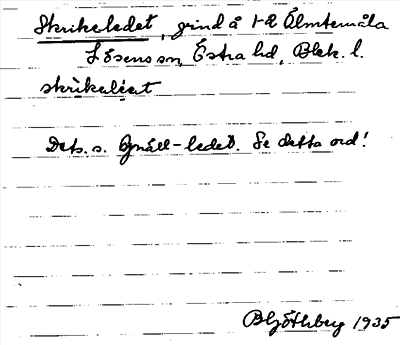 Skrikeledet, grind å 1-2 Älmtemåla
Lösens sn, Östra hd, Blek. l.
skrìkeléet
Dets. s. Gnäll-ledet. Se detta ord!
B Göthberg 1935